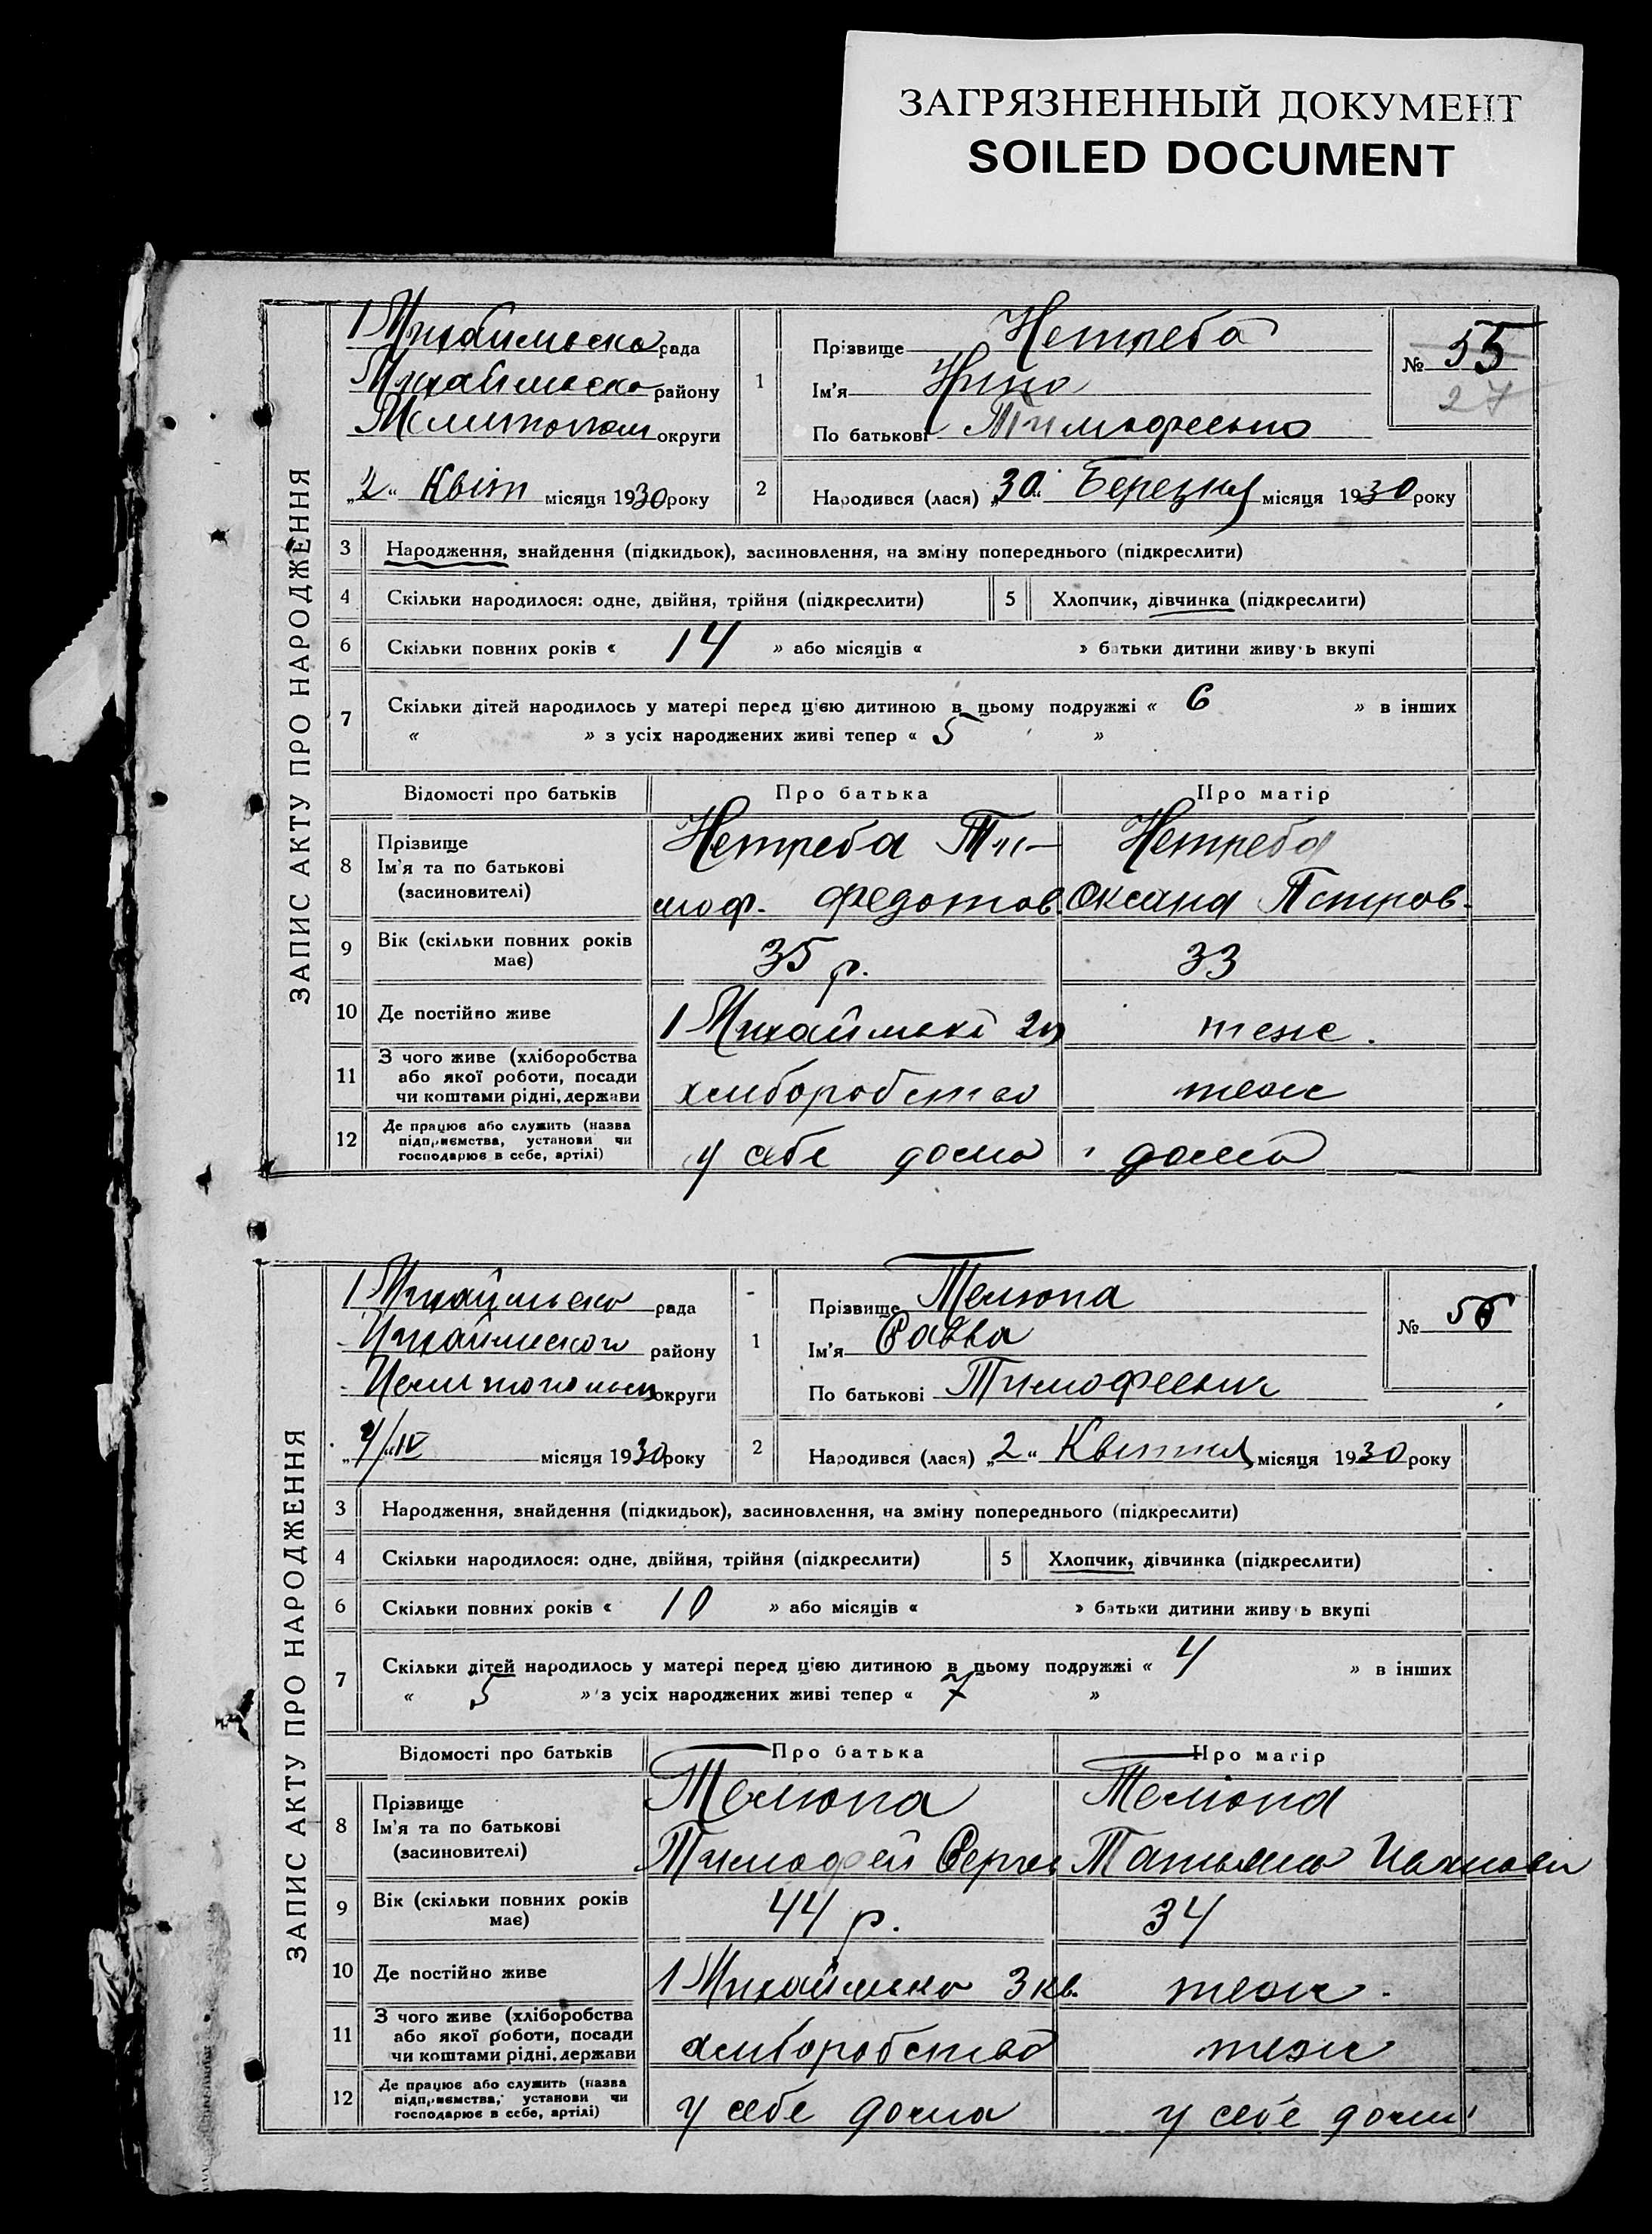 ЗАГРЯЗНЕННЫЙ ДОКУМЕНТ
SOILED DOCUMENT
ЗАПИС АКТУ ПРО НАРОДЖЕННЯ
1 Михайлсько рада
Михайлсько району
округи
„2“ Квіт місяця 1930 року
1
Прізвище Нетреба
Ім'я Нина
По батькові Тимофеевна
№ 55
27
2
Народився (лася) „30“ Березня місяця 1930 року
3 Народження, знайдення (підкидьок), засиновлення, на зміну попереднього (підкреслити)
4 Скільки народилося: одне, двійня, трійня (підкреслити)
5 Хлопчик, дівчинка (підкреслити)
6 Скільки повних років « 14 » або місяців « » батьки дитини живуть вкупі
7 Скільки дітей народилось у матері перед цією дитиною в цьому подружжі « 6 » в інших
« » з усіх народжених живі тепер « 5 »
Відомості про батьків Про батька Про матір
8 Прізвище
Ім'я та по батькові
(засиновителі)
Нетреба Ти-
моф. Федотов.
Нетреба
Оксана Петров.
9 Вік (скільки повних років
має)
35 р. 33
10 Де постійно живе
1 Михайлвкі теже.
11 З чого живе (хліборобства
або якої роботи, посади
чи коштами рідні, держави
хлиборобство теж
12 Де працює або служить (назва
підприємства, установи чи
господарює в себе, артілі)
у себе дома дома
ЗАПИС АКТУ ПРО НАРОДЖЕННЯ
1 Михайлвсько рада
району
округи
„4/IV місяця 1930 року
1
Прізвище Телюпа
Ім'я Савва
По батькові Тимофеевич
№ 56
2
Народився (лася) „2“ Квітня місяця 1930 року
3 Народження, знайдення (підкидьок), засиновлення, на зміну попереднього (підкреслити)
4 Скільки народилося: одне, двійня, трійня (підкреслити)
5 Хлопчик, дівчинка (підкреслити)
6 Скільки повних років « 10 » або місяців « » батьки дитини живуть вкупі
7 Скільки дітей народилось у матері перед цією дитиною в цьому подружжі « 4 » в інших
« 5 » з усіх народжених живі тепер « 7 »
Відомості про батьків Про батька Про матір
8 Прізвище
Ім'я та по батькові
(засиновителі)
Телюпа
Тимофей Сергев
Телюпа
Татьяна
9 Вік (скільки повних років
має)
44 р. 34
10 Де постійно живе
1 Михайлвка 3 кв. теж
11 З чого живе (хліборобства
або якої роботи, посади
чи коштами рідні, держави
хлиборобство теж
12 Де працює або служить (назва
підприємства, установи чи
господарює в себе, артілі)
у себе дома у себе дома